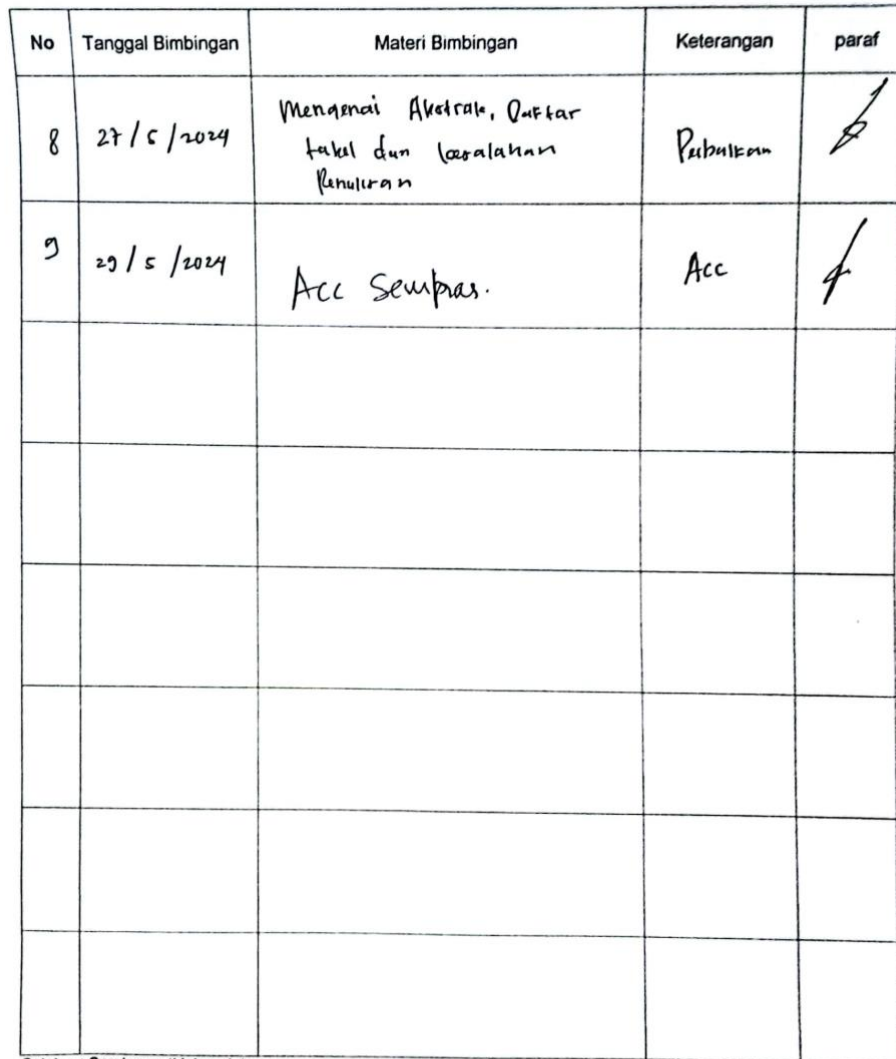 No Tanggal Bimbingan Materi Bimbingan Keterangan paraf
8 27/5/2024 Mengenai Abstrak, Daftar
tabel dan kesalahan
Penulisan
Perbaikan
9 29/5/2024 Acc Sempras. Acc